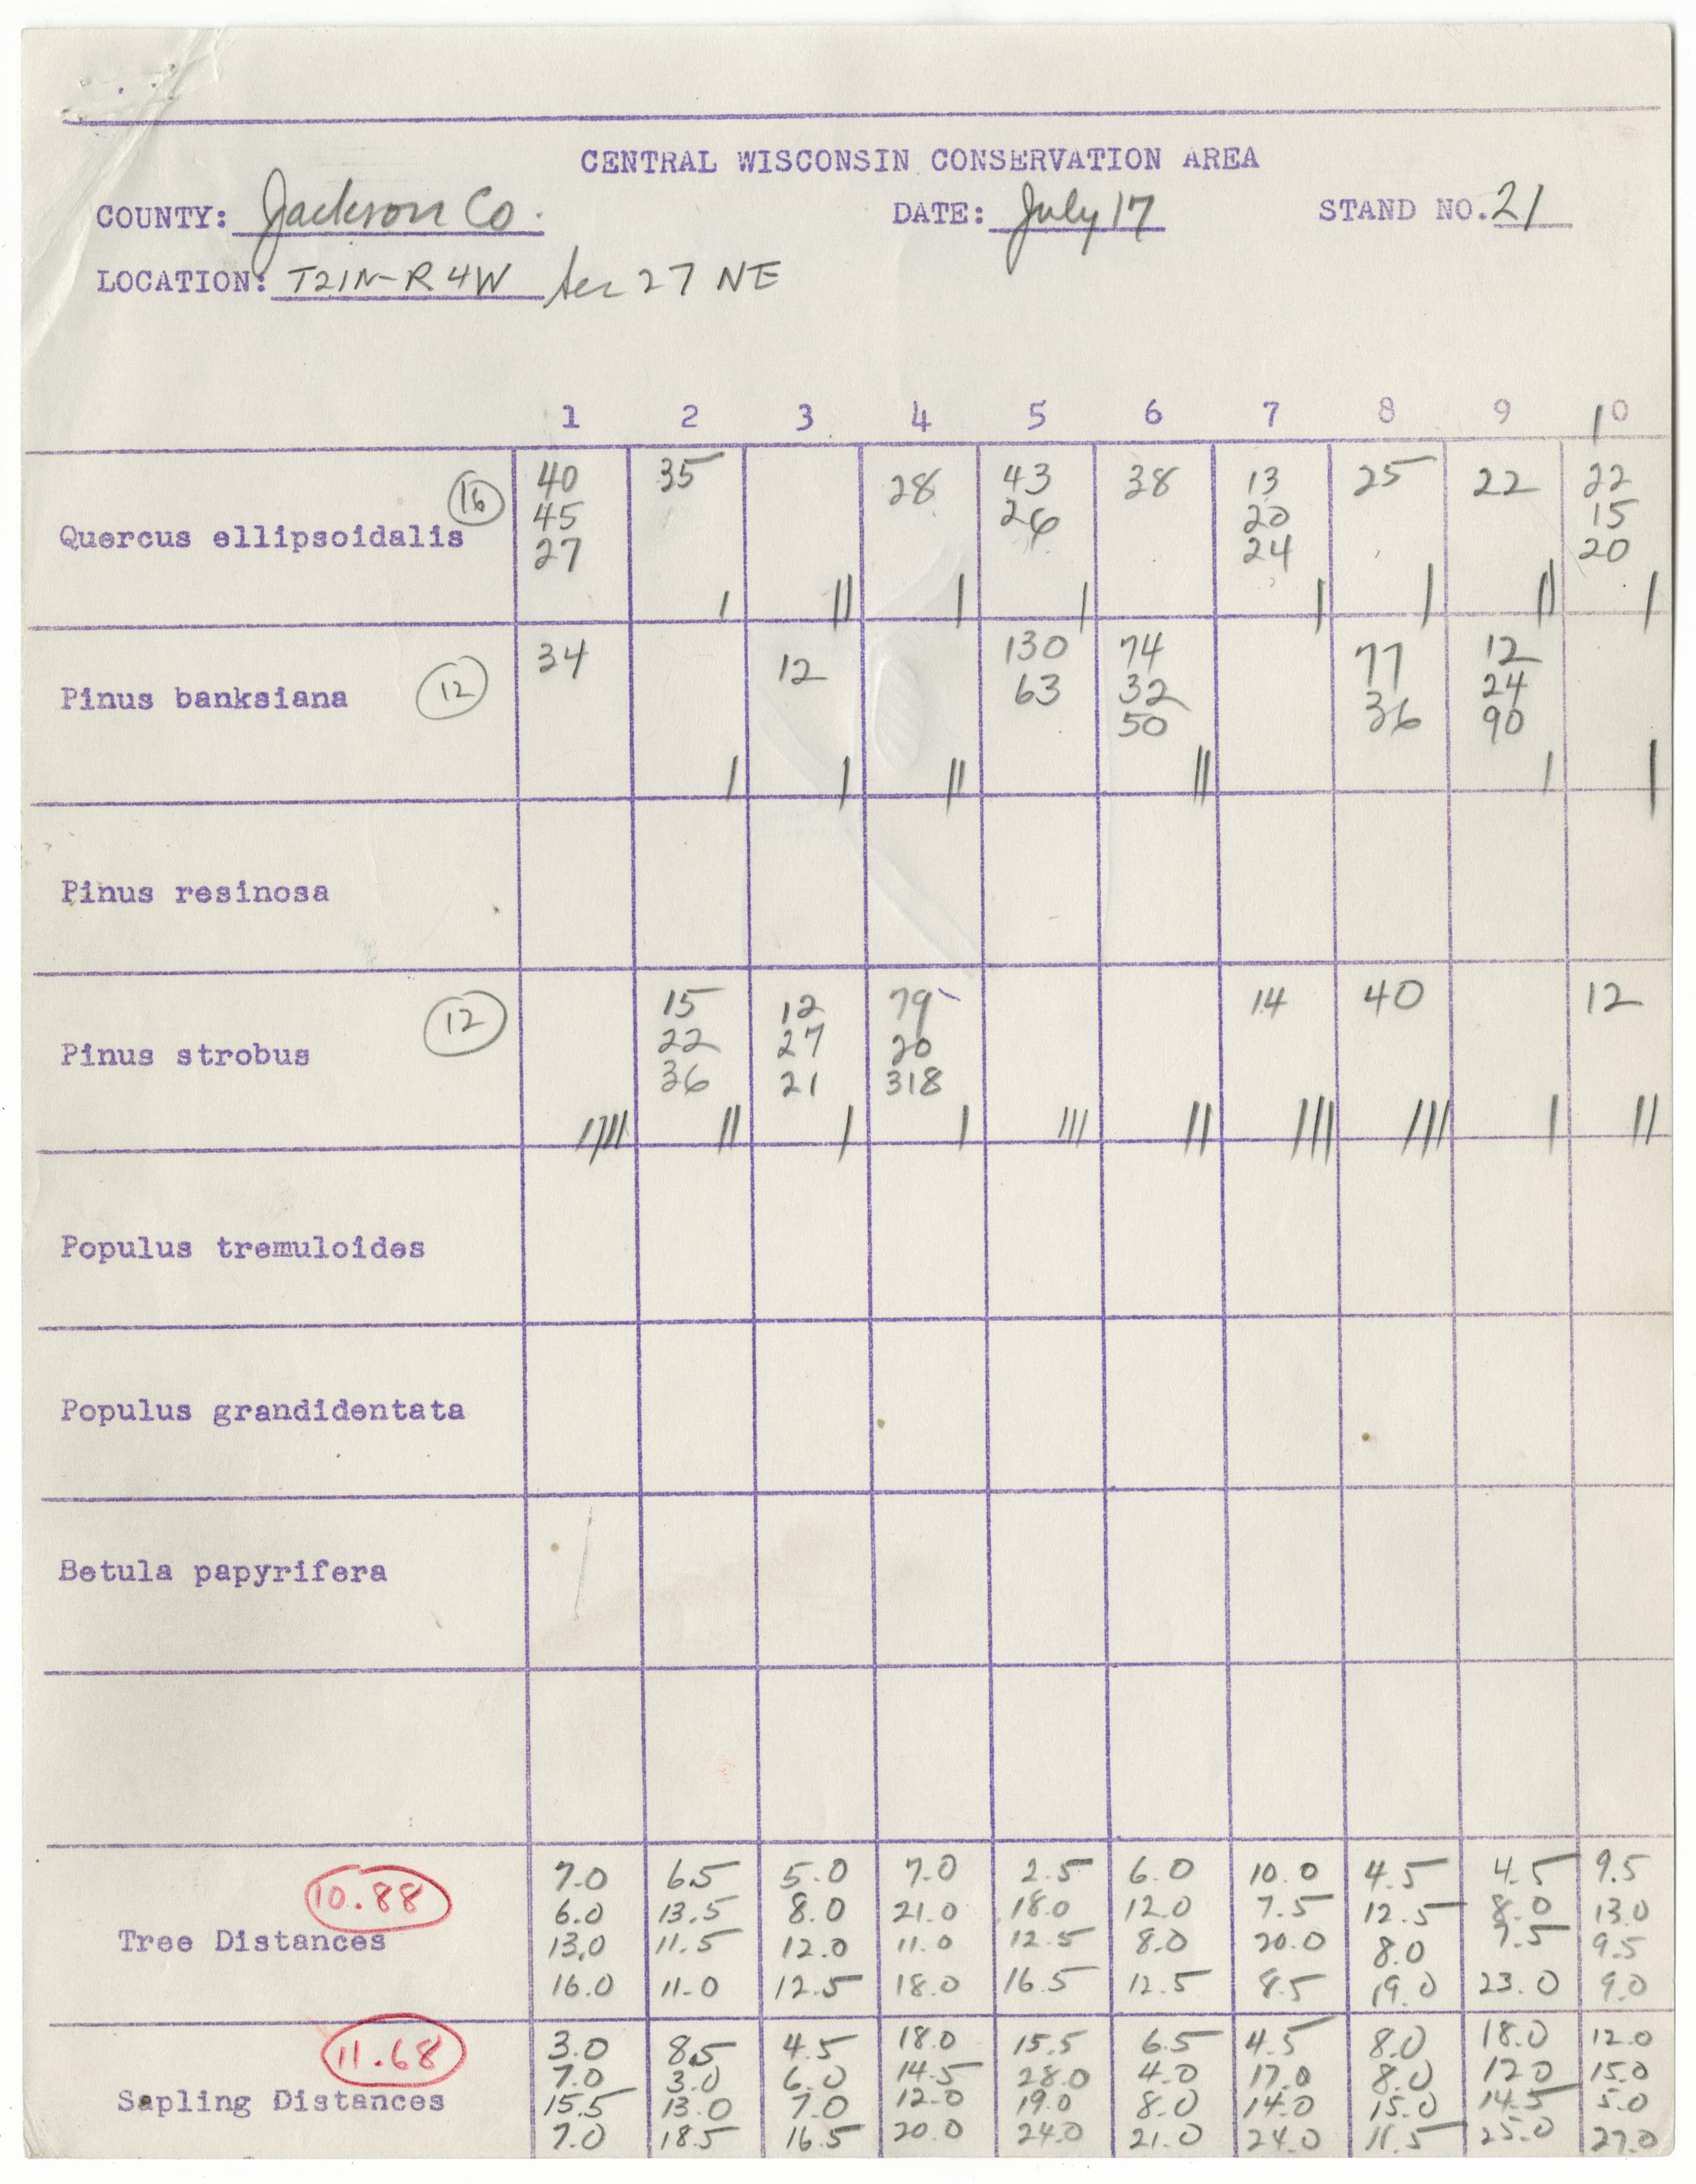 CENTRAL WISCONSIN CONSERVATION AREA
COUNTY: Jackson Co. DATE: July 17 STAND NO. 21
LOCATION: T21N-R4W Sec 27 NE
1 2 3 4 5 6 7 8 9 10
16 40 35 28 43 38 13 25 22 22
45 26 20 15
Quercus ellipsoidalis
27 24 20
| || | | | | || |
34 12 130 74 77 12
12 63 32 36 24
Pinus banksiana
50 90
| | || || | |
Pinus resinosa
12 15 12 79 14 40 12
22 27 20
Pinus strobus
36 21 318
|||| || | | ||| || ||| ||| | ||
Populus tremuloides
Populus grandidentata
Betula papyrifera
10.88 7.0 6.5 5.0 7.0 2.5 6.0 10.0 4.5 4.5 9.5
6.0 13.5 8.0 21.0 18.0 12.0 7.5 12.5 8.0 13.0
Tree Distances 13.0 11.5 12.0 11.0 12.5 8.0 20.0 8.0 7.5 9.5
16.0 11.0 12.5 18.0 16.5 12.5 8.5 19.0 23.0 9.0
11.68 3.0 8.5 4.5 18.0 15.5 6.5 4.5 8.0 18.0 12.0
7.0 3.0 6.0 14.5 28.0 4.0 17.0 8.0 12.0 15.0
Sapling Distances 15.5 13.0 7.0 12.0 19.0 8.0 14.0 15.0 14.5 5.0
7.0 18.5 16.5 20.0 24.0 21.0 24.0 11.5 25.0 27.0